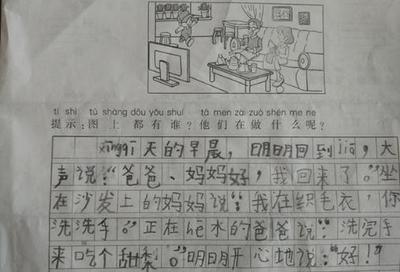 tí shì tú shàng dōu yǒu shuí tā men zài zuò shén me ne
提示：图上都有谁？他们在做什么呢？
xīngqī天的早晨，明明回到jiā，大
声说：“爸爸、妈妈好，我回来了。”坐
在沙发上的妈妈说：“我在织毛衣，你
洗洗手。”正在hē水的爸爸说：“洗完手
来吃个甜梨。”明明开心地说：“好！”